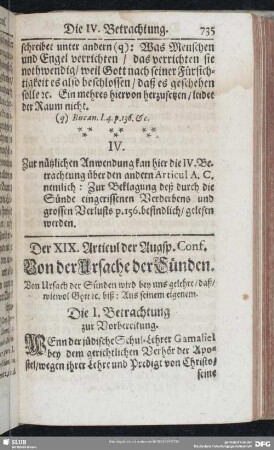 Die IV. Betrachtung. 735
schreibet unter andern (q): Was Menschen
und Engel verrichten / das verrichten sie
nothwendig / weil Gott nach seiner Fürsich-
tigkeit es also beschlossen / daß es geschehen
solle ꝛc. Ein mehres hiervon herzusetzen / leidet
der Raum nicht.
(q) Bucan. l. 4. p. 136. &c.
IV.
Zur nützlichen Anwendung kan hier die IV. Be-
trachtung über den andern Articul A. C.
nemlich: Zur Beklagung deß durch die
Sünde eingerissenen Verderbens und
grossen Verlusts p. 156. befindlich / gelesen
werden.
Der XIX. Articul der Augsp. Conf.
Von der Ursache der Sünden.
Von Ursach der Sünden wird bey uns gelehrt / daß /
wiewol Gott ꝛc. biß: Aus seinem eigenem.
Die I. Betrachtung
zur Vorbereitung.
WEnn der jüdische Schul-Lehrer Gamaliel
bey dem gerichtlichen Verhör der Apo-
stel / wegen ihrer Lehre und Predigt von Christo /
seine
SLUB